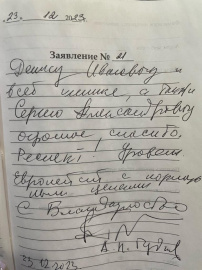 23. 12 2023
Заявление № 21
Денису Ивановичу и
всей клинике, а также
Сергею Александровичу
огромное спасибо.
Респект! Уровень
Европейский с нормаль
ными ценами
С Благодарностью
23.12.2023